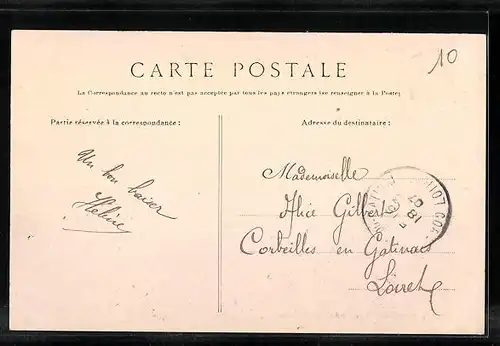 10
CARTE POSTALE
La Correspondance au recto n'est pas acceptée par tous les pays étrangers (se renseigner à la Poste)
Partie réservée à la correspondance :
Adresse du destinataire :
Un bon baiser
Hélène
Mademoiselle
Alice Gilbert
Corbeilles en Gâtinais
Loiret